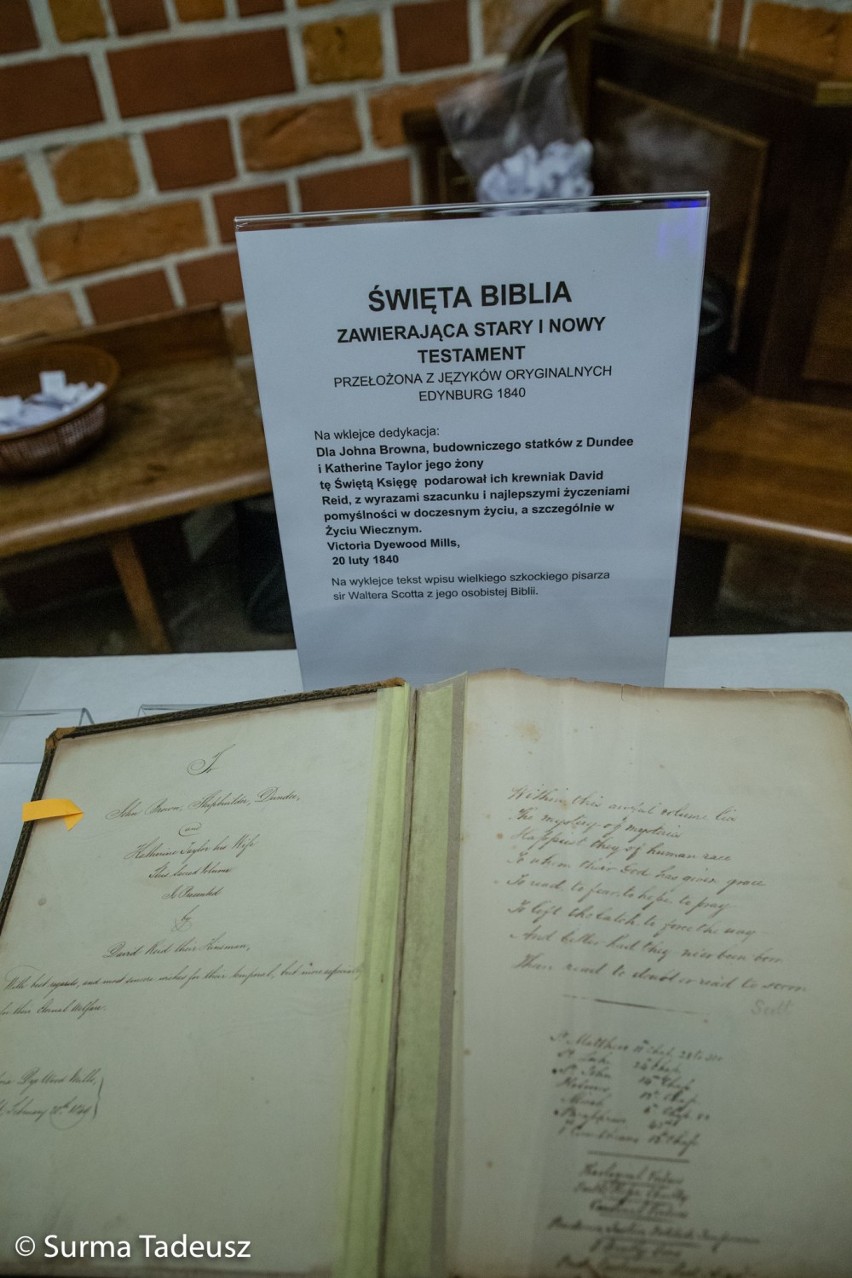 ŚWIĘTA BIBLIA
ZAWIERAJĄCA STARY I NOWY
TESTAMENT
PRZEŁOŻONA Z JĘZYKÓW ORYGINALNYCH
EDYNBURG 1840
Na wklejce dedykacja:
Dla Johna Browna, budowniczego statków z Dundee
i Katherine Taylor jego żony
tę Świętą Księgę podarował ich krewniak David
Reid, z wyrazami szacunku i najlepszymi życzeniami
pomyślności w doczesnym życiu, a szczególnie w
Życiu Wiecznym.
Victoria Dyewood Mills,
20 luty 1840
Na wyklejce tekst wpisu wielkiego szkockiego pisarza
sir Waltera Scotta z jego osobistej Biblii.
To
John Brown, Shipbuilder, Dundee,
and
Katherine Taylor his Wife
This Sacred Volume
Is Presented
by
David Reid their Kinsman,
With best regards, and most sincere wishes for their temporal, but more especially
for their Eternal Welfare.
Dye Wood Mills,
February 20th 1840
Within this awful volume lies
The mystery of mysteries
Happiest they of human race
To whom their God has given grace
To read to fear to hope to pray
To lift the latch to force the way
And better had they never been born
Than read to doubt or read to scorn
Scott
St. Matthew 11th Chap. 28 to 30
St. Luke
St. John 14th Chap
Romans
Micah 6th Chap.
1st Corinthians 15th Chap
© Surma Tadeusz